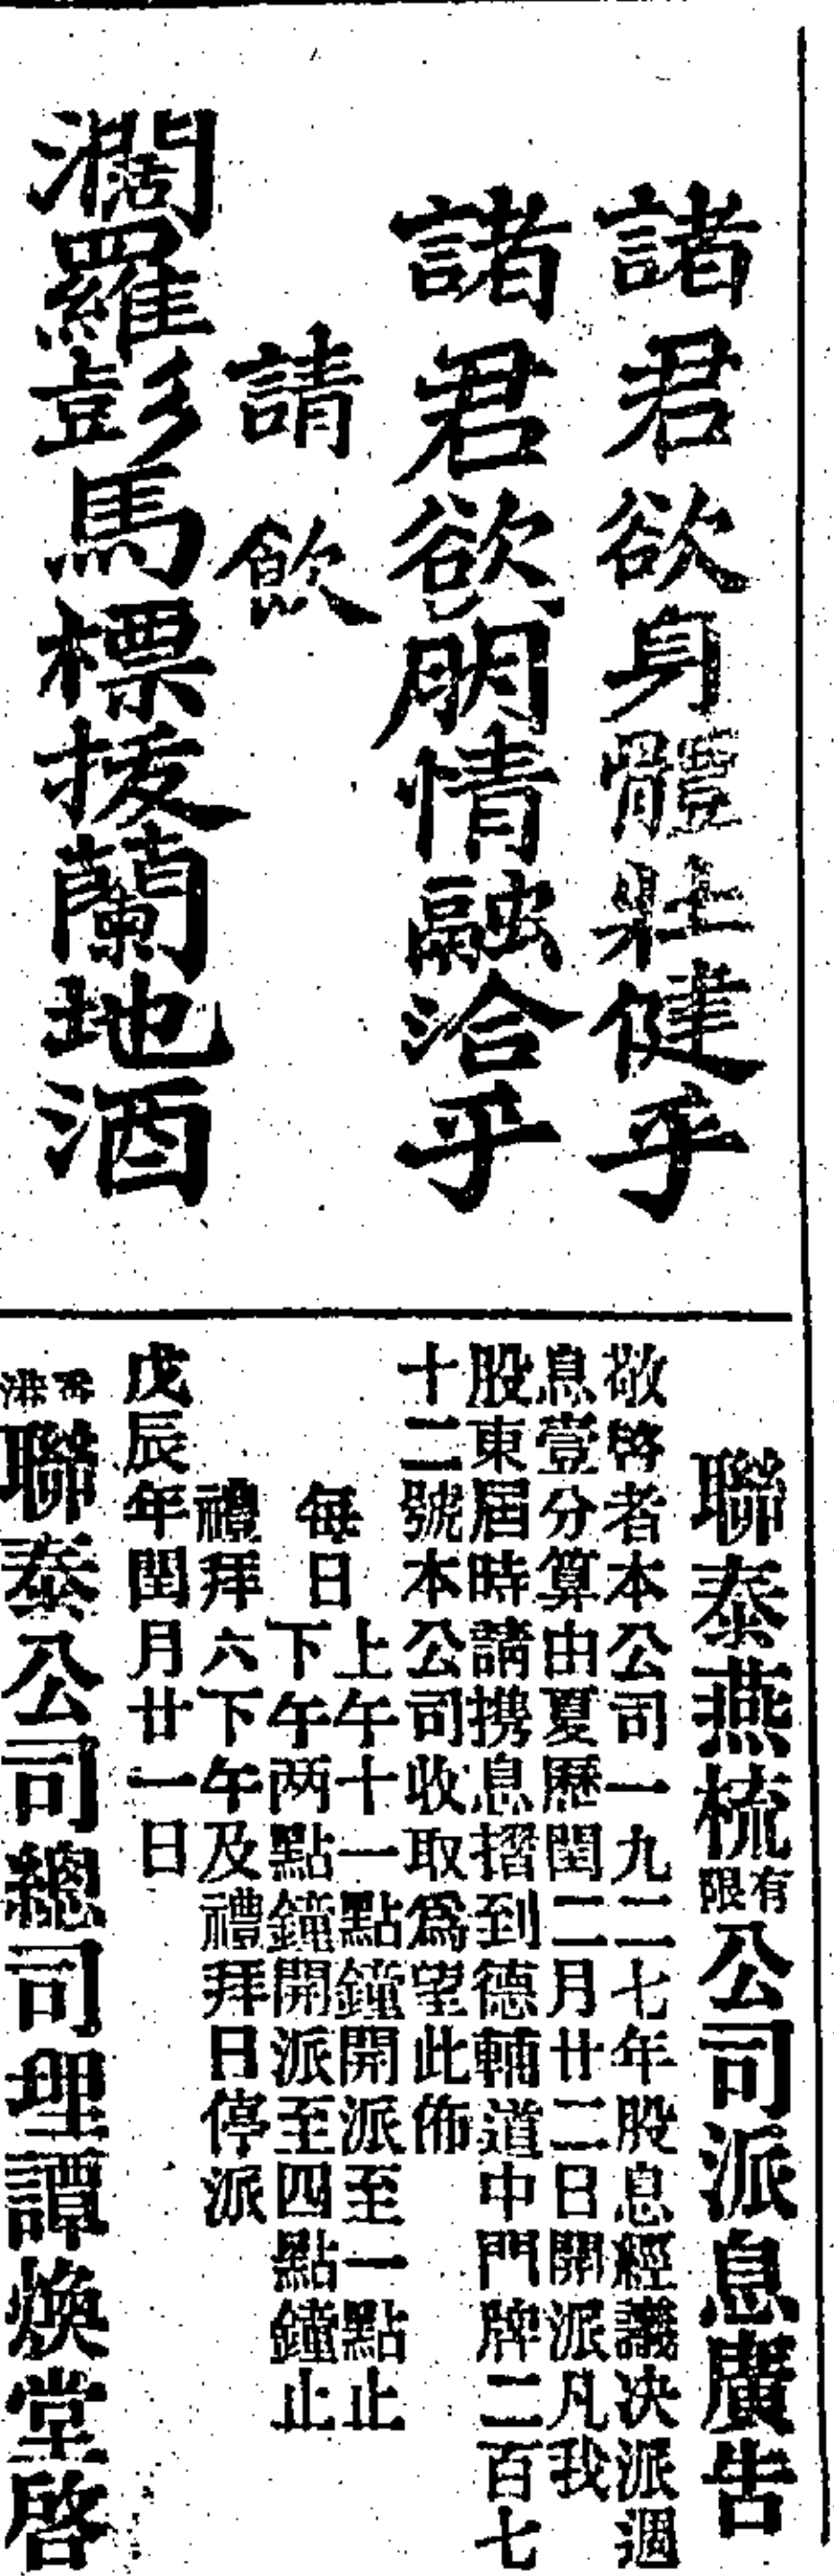 諸君欲身體壯健乎
諸君欲朋情融洽乎
請飲
濶羅彭馬標拔蘭地酒
聯泰燕梳有限公司派息廣告
敬啓者本公司一九二七年股息經議决派週
息壹分算由夏曆閏二月廿二日開派凡我
股東屆時請携息摺到德輔道中門牌二百七
十二號本公司收取爲望此佈
每日
上午十一點鐘開派至一點止
下午两點鐘開派至四點鐘止
禮拜六下午及禮拜日停派
戊辰年閏月廿一日
香港聯泰公司總司理譚煥堂啓